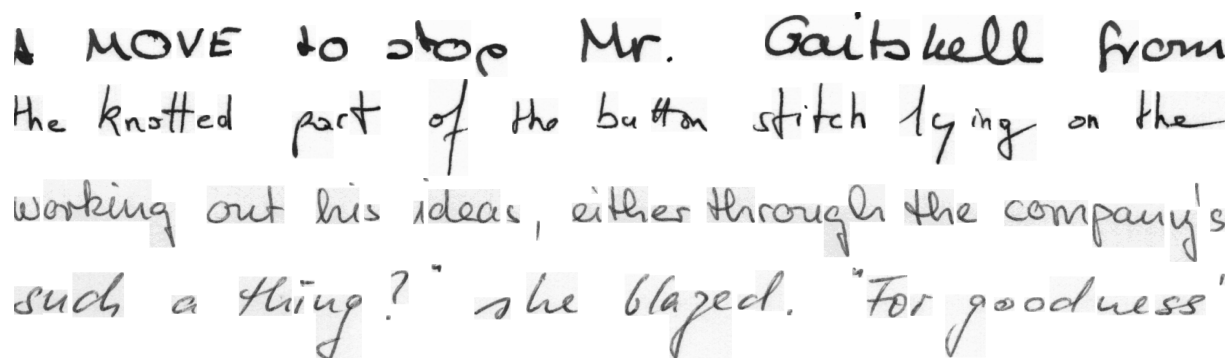 A MOVE to stop Mr. Gaitskell from
the knotted part of the button stitch lying on the
working out his ideas, either through the company's
such a thing?" she blazed. "For goodness'